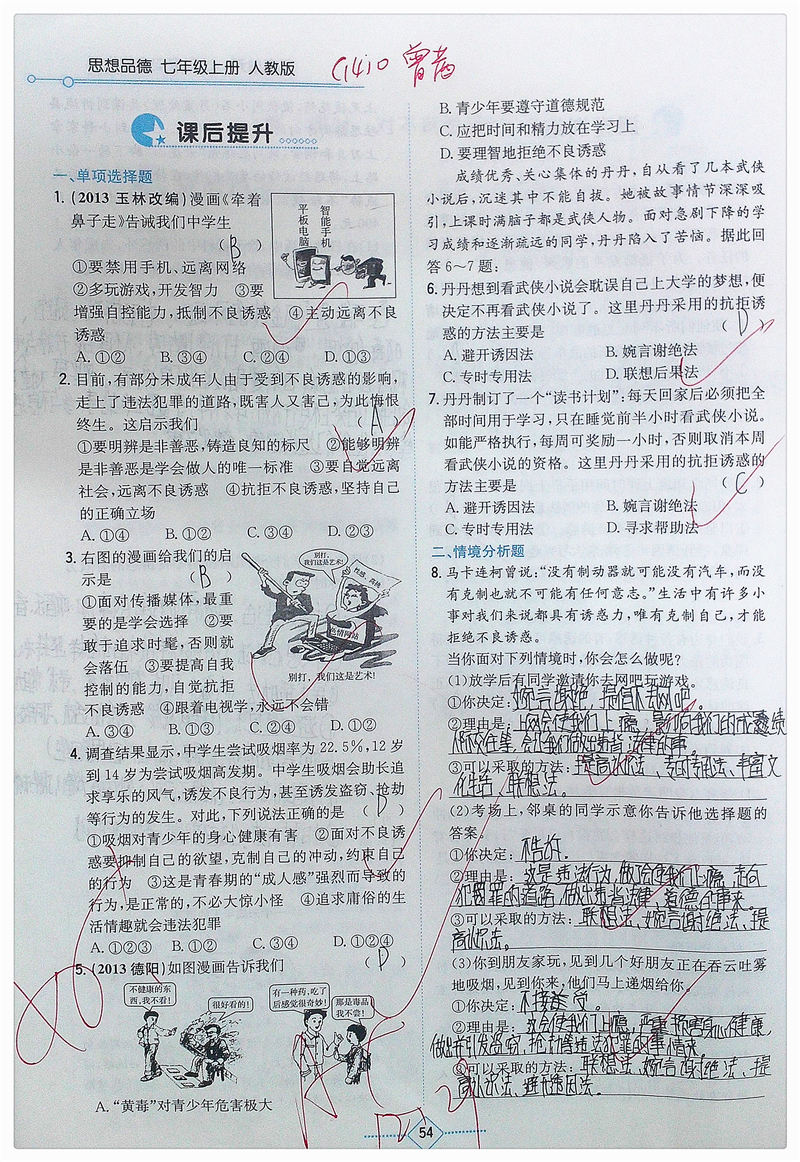 思想品德 七年级上册 人教版
(14)0
课后提升
一、单项选择题
1. (2013 玉林改编)漫画《牵着
鼻子走》告诫我们中学生
( B )
智能手机
平板电脑
①要禁用手机、远离网络
②多玩游戏,开发智力 ③要
增强自控能力,抵制不良诱惑 ④主动远离不良
诱惑
A. ①② B. ③④ C. ②④ D. ①③
2. 目前,有部分未成年人由于受到不良诱惑的影响,
走上了违法犯罪的道路,既害人又害己,为此悔恨
终生。这启示我们 ( A )
①要明辨是非善恶,铸造良知的标尺 ②能够明辨
是非善恶是学会做人的唯一标准 ③要自觉远离
社会,远离不良诱惑 ④抗拒不良诱惑,坚持自己
的正确立场
A. ①④ B. ①② C. ③④ D. ②③
3. 右图的漫画给我们的启
示是 ( B )
别打,
我们这是艺术!
色情网站
别打,我们这是艺术!
①面对传播媒体,最重
要的是学会选择 ②要
敢于追求时髦,否则就
会落伍 ③要提高自我
控制的能力,自觉抗拒
不良诱惑 ④跟着电视学,永远不会错
A. ③④ B. ①③ C. ②④ D. ①②
4. 调查结果显示,中学生尝试吸烟率为 22.5%,12 岁
到 14 岁为尝试吸烟高发期。中学生吸烟会助长追
求享乐的风气,诱发不良行为,甚至诱发盗窃、抢劫
等行为的发生。对此,下列说法正确的是 ( D )
①吸烟对青少年的身心健康有害 ②面对不良诱
惑要抑制自己的欲望,克制自己的冲动,约束自己
的行为 ③这是青春期的“成人感”强烈而导致的
行为,是正常的,不必大惊小怪 ④追求庸俗的生
活情趣就会违法犯罪
A. ①②③ B. ③④ C. ②④ D. ①②④
5. (2013 德阳)如图漫画告诉我们 ( D )
不健康的东
西,我不看!
很好看的!
有一种药,吃了
后感觉很奇妙!
那是毒品
我不尝!
A. “黄毒”对青少年危害极大
B. 青少年要遵守道德规范
C. 应把时间和精力放在学习上
D. 要理智地拒绝不良诱惑
成绩优秀、关心集体的丹丹,自从看了几本武侠
小说后,沉迷其中不能自拔。她被故事情节深深吸
引,上课时满脑子都是武侠人物。面对急剧下降的学
习成绩和逐渐疏远的同学,丹丹陷入了苦恼。据此回
答 6~7 题:
6. 丹丹想到看武侠小说会耽误自己上大学的梦想,便
决定不再看武侠小说了。这里丹丹采用的抗拒诱
惑的方法主要是 ( D )
A. 避开诱因法 B. 婉言谢绝法
C. 专时专用法 D. 联想后果法
7. 丹丹制订了一个“读书计划”:每天回家后必须把全
部时间用于学习,只在睡觉前半小时看武侠小说。
如能严格执行,每周可奖励一小时,否则取消本周
看武侠小说的资格。这里丹丹采用的抗拒诱惑的
方法主要是 ( C )
A. 避开诱因法 B. 婉言谢绝法
C. 专时专用法 D. 寻求帮助法
二、情境分析题
8. 马卡连柯曾说:“没有制动器就可能没有汽车,而没
有克制也就不可能有任何意志。”生活中有许多小
事对我们来说都具有诱惑力,唯有克制自己,才能
拒绝不良诱惑。
当你面对下列情境时,你会怎么做呢?
(1)放学后有同学邀请你去网吧玩游戏。
①你决定:婉言谢绝,提倡不去网吧。
②理由是:上网会使我们上瘾,影响我们的成绩
会让我们做出违背法律的事。
③可以采取的方法:提高认识法、专时专用法、丰富文
化生活、联想法。
(2)考场上,邻桌的同学示意你告诉他选择题的
答案。
①你决定:不告诉.
②理由是:这是违法行为,做了会使我们上瘾,走向
犯罪的道路,做出违背法律、道德的事来。
③可以采取的方法:联想法、婉言谢绝法、提
高认识法。
(3)你到朋友家玩,见到几个好朋友正在吞云吐雾
地吸烟,见到你来,他们马上递烟给你。
①你决定:不接受.
②理由是:这会使我们上瘾,严重损害身心健康,
并引发盗窃,抢劫等违法犯罪的事情来。
③可以采取的方法:联想法、婉言谢绝法、提
高认识法、避开诱因法。
54